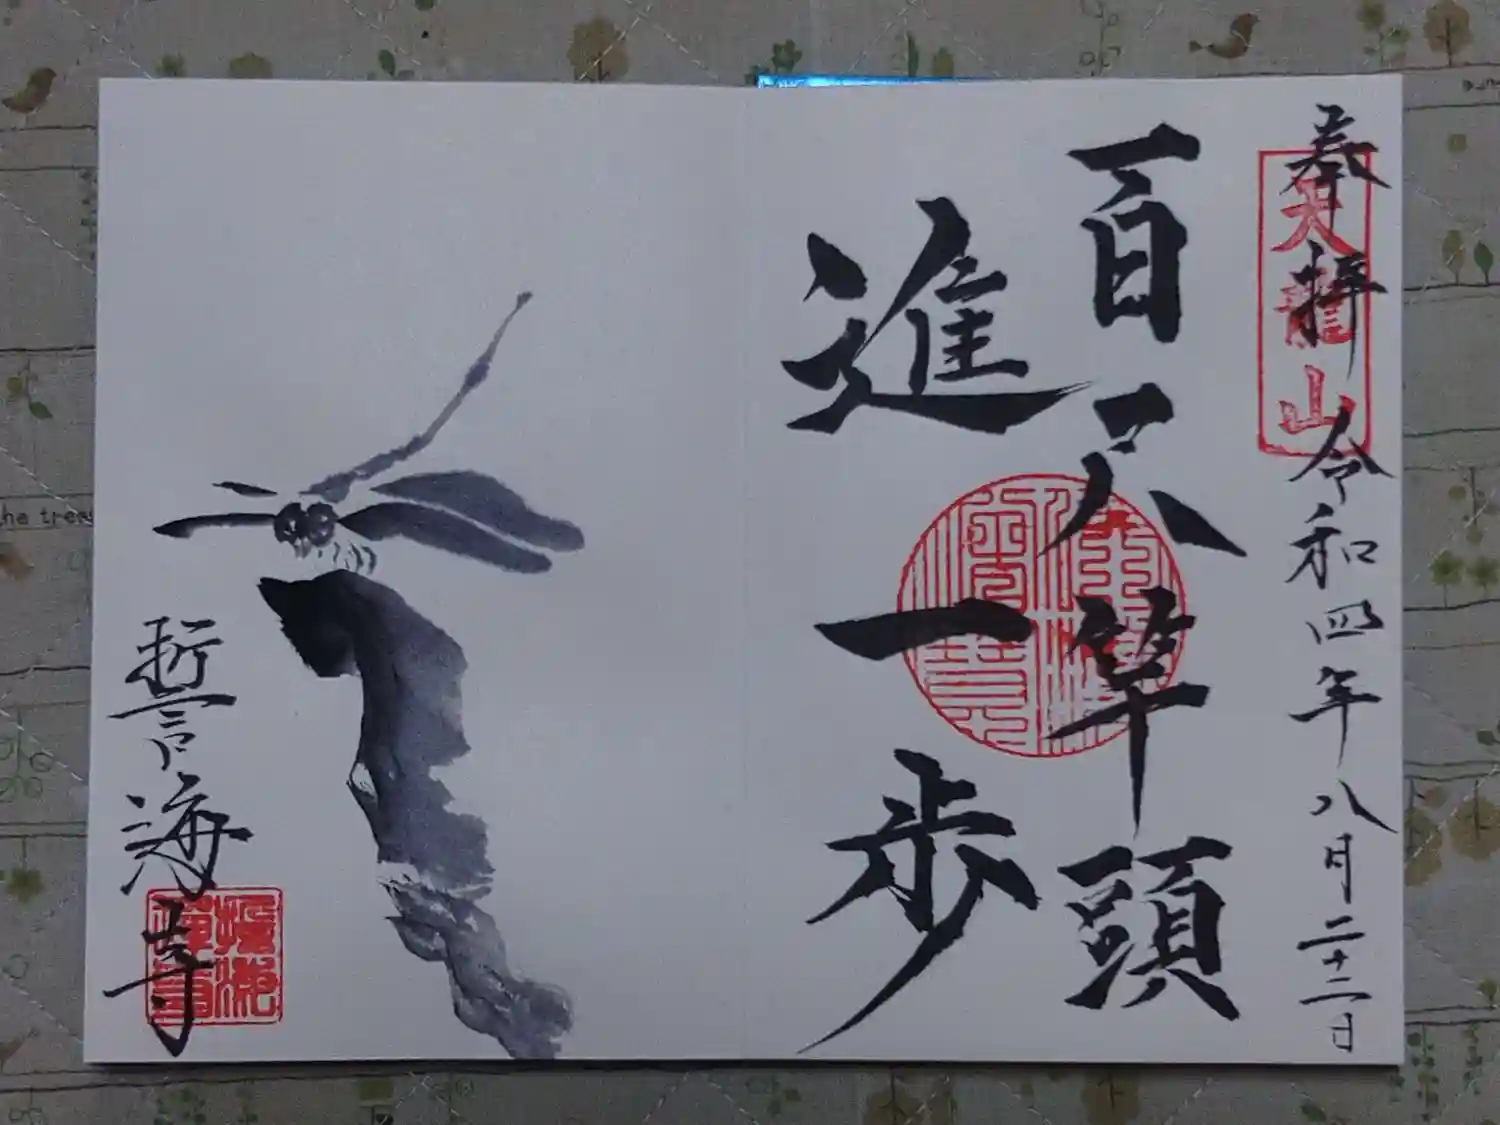 奉拝 令和四年八月二十二日
天龍山
百尺竿頭
進一歩
誓海寺
he tree